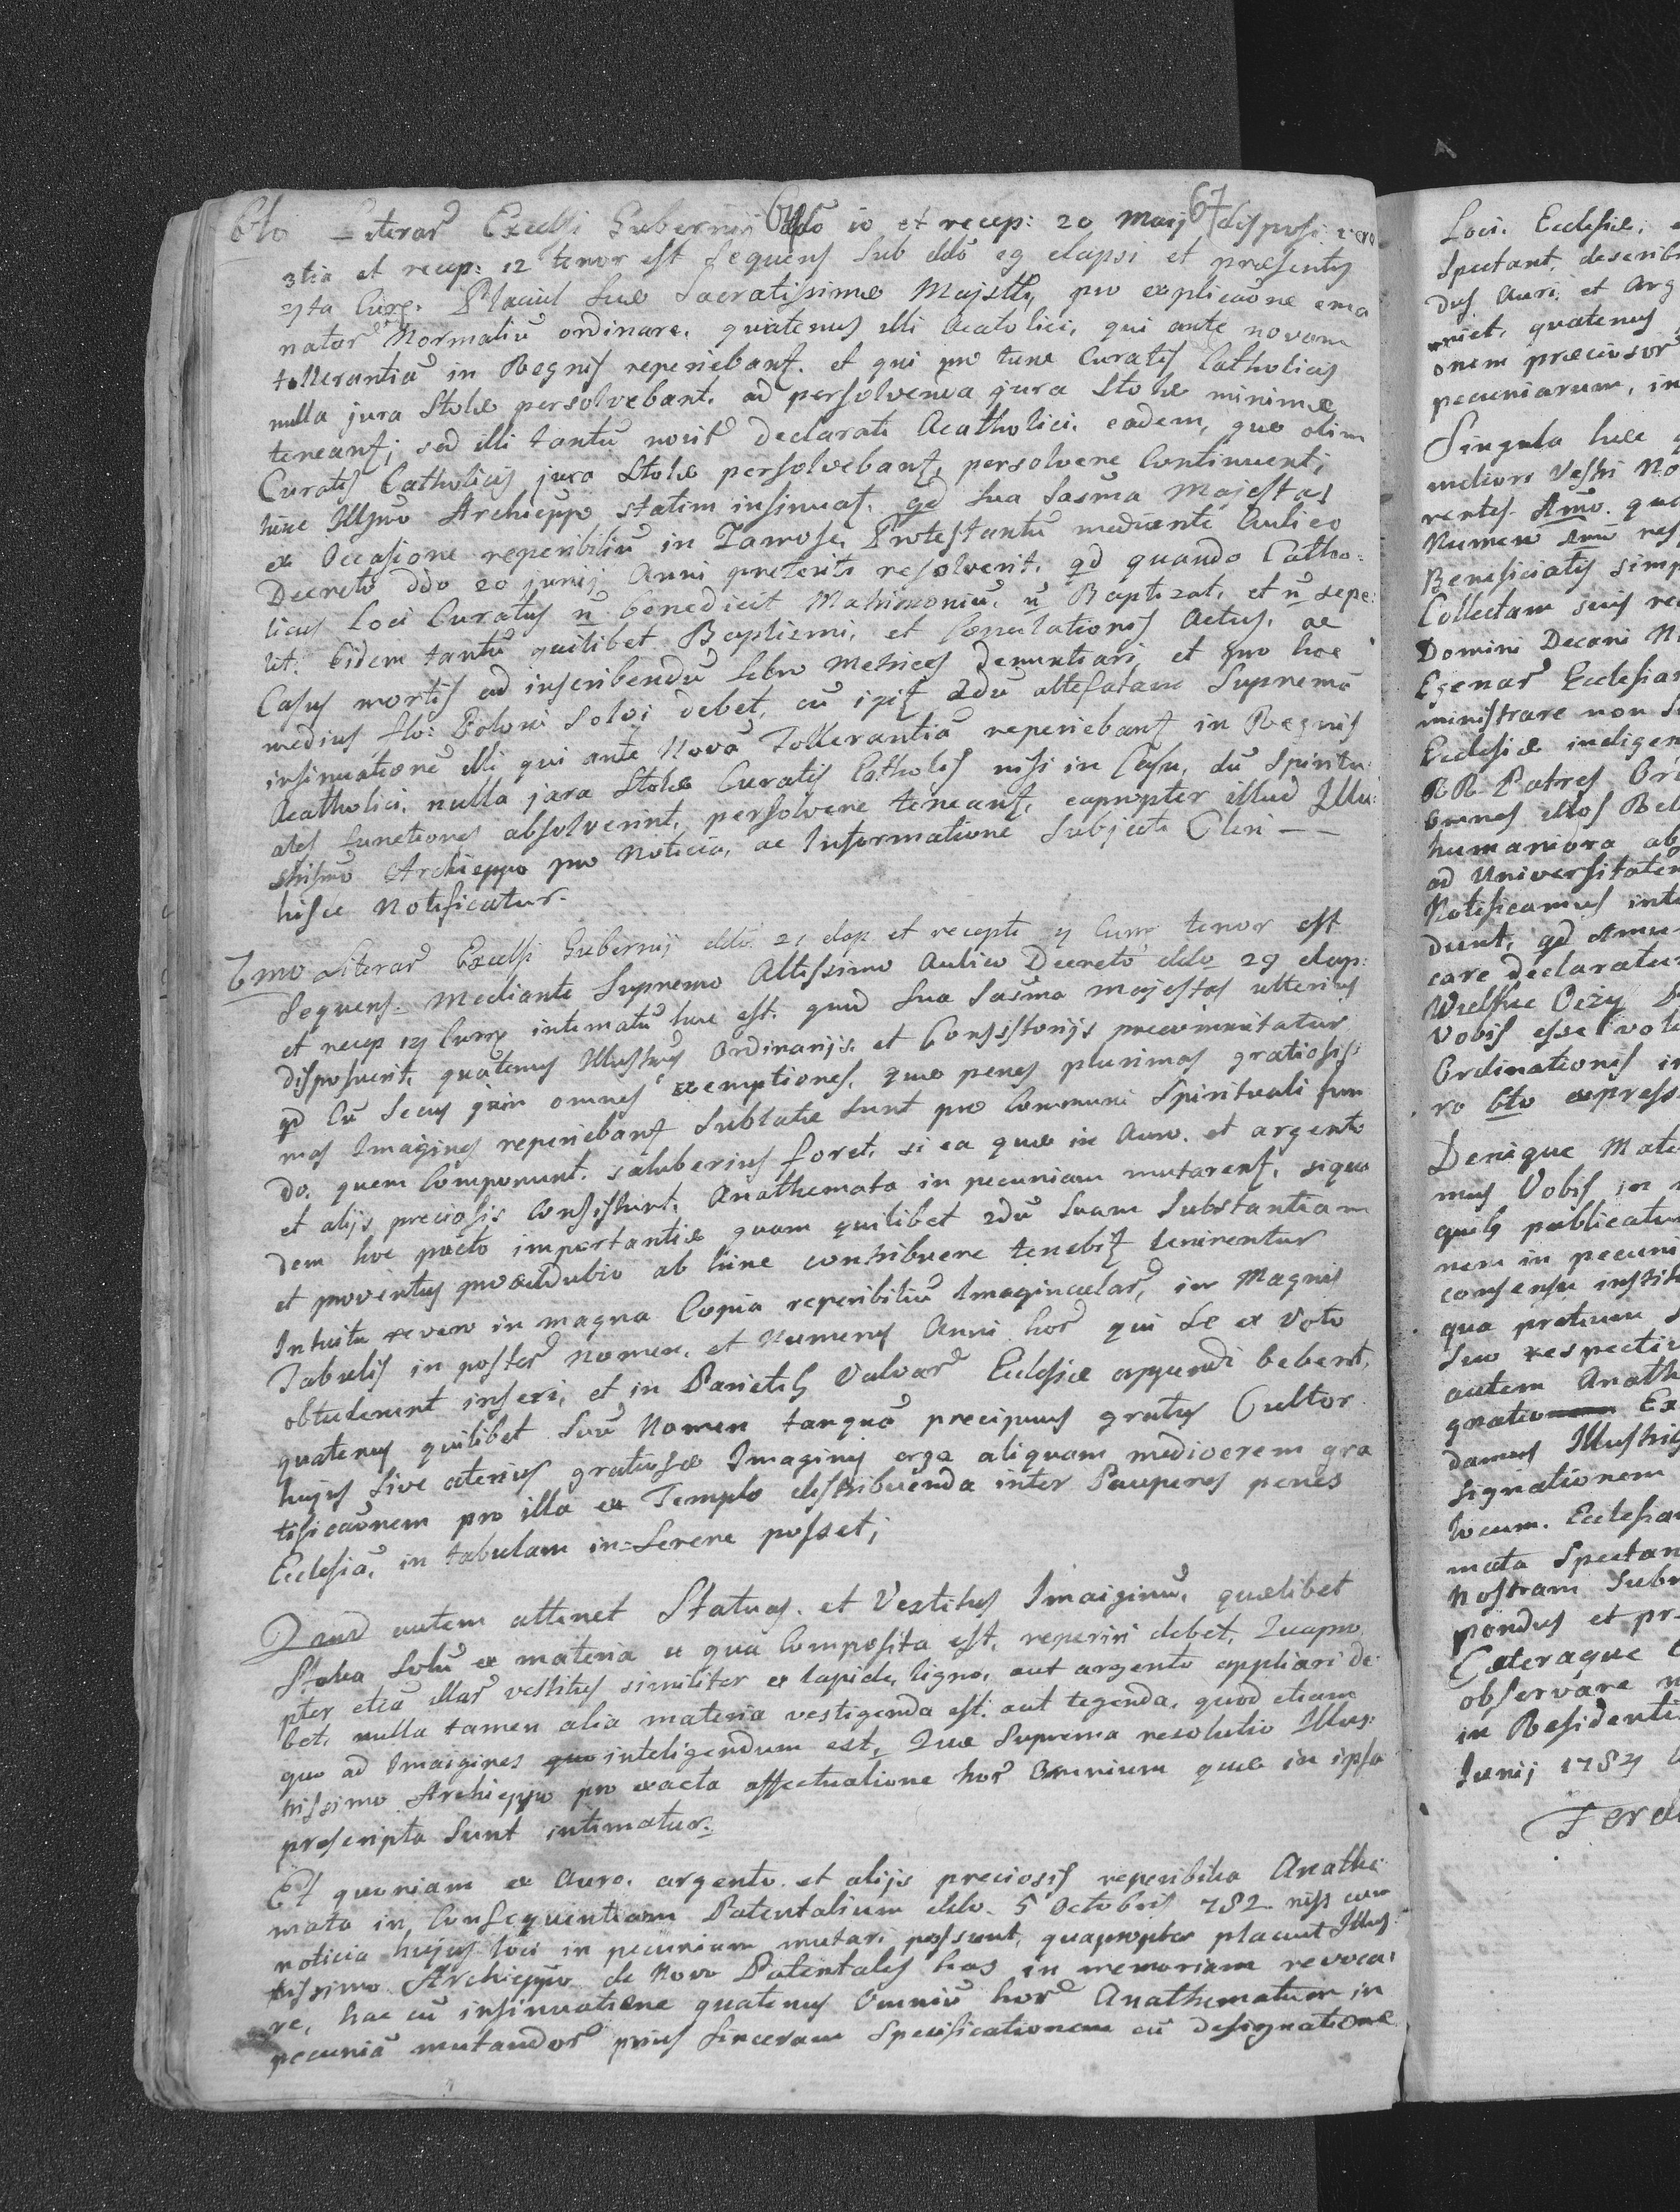 64 67
6to Literar̄ Excelsi Gubernij ddō 10 et recep: 20 Maij disposi:
3tia et recep: 12 tenor est sequens Sub ddō 29 elapsi et præsentis
Curr. Placuit Suæ Sacratissimæ Majstti, pro explicaōne ema
natar̄ Normaliū ordinare. quatenus illi Acatolici, qui ante novam
tollerantiā in Regnis reperiebant. et qui pro tunc Curatis Catholicis
nulla jura Stolæ persolvebant. ad persolvenda jura Stolæ minime
teneant; sed illi tantū noviter declarati Acatholici. eadem, quæ olim
Curatis Catholicis jura Stolæ persolvebant, persolvere Continuent;
hinc Illmo Archieppo statim insinuat. qd Sua Sacrma Majestas
ex Occasione reperibiliū in Zamose, Protestantū mediante Aulico
Decreto ddo 20 junij Anni preteriti resolverit, qd quando Catho=
licus Loci Curatus n̄ benedicit Matrimoniū. n̄ Baptizat, et n̄ sepe:
lit. Eidem tantū quilibet Baptismi, et Copulationis Actus, ac
Casus mortis ad inscribendū libro Metrices denuntiari, et pro hoc
medius flo: Poloni Solvi debet, cū igit 2dū attefatam Supremā
insinuationē illi qui ante Novā Tollerantiā reperiebant in Regnis
Acatholici. nulla jura Stolæ Curatis Catholis nisi in Casu, dū Spiritu:
ales functiones absolverint, persolvere teneant, eapropter illud Illu:
strismo Archieppo pro Noticia, ac Informatione Subjecti Cleri — —
hisce Notificatur.
7mo Literar̄ Excelsi Gubernij ddō. 21 elap et recepti 4 Curr tenor est
Sequens. Mediante Supremo Altissimo Aulico Decreto ddo 29 elap:
et recep 12 Curr intimatū huc est. quod Sua Sacrma Majestas ulterius
disposuerit, quatenus Illustris Ordinarijs. et Consistorijs precomunitatur
qd Cū Secus quin omnes exemptiones, quæ penes plurimas gratiosis:
mas Imagines reperiebant Sublatæ Sunt pro Communi Spirituali fun
do, quem Componunt. saluberius foret, si ea quæ in Auro. et argento
et alijs preciosis Consistunt. Anathemata in pecuniam mutarent, siqui
dem hoc pacto importantiæ quam quilibet 2dū Suam Substantiam
et proventus procul dubio ab hinc contribuere tenebit lenirentur
Intuitu revero in magna Copia reperibiliū Imaginculař, in Magnis
Tabulis in poster̄ nomen, et Numerus Anni hor̄ qui Se ex Voto
obtulerunt inseri, et in Parietib Valvar̄ Eclesiæ appendi bebent.
quatenus quilibet Suū Nomen tanquā precipuus gratus Cultor
hujus Sive alterius gratiosæ Imaginis erga aliquam mediocrem gra
tificaōnem pro illa ex Templo distribuenda inter Pauperes penes
Ecclesiā, in tabulam in=Serere posset;
Quod autem attinet Statuas. et Vestitus Imaiginū, quælibet
Statua Solū ex materia e qua Composita est, reperiri debet, Quapro
pter etiā illar̄ vestitus similiter ex lapide, ligno, aut argento appliari de:
bet, nulla tamen alia materia vestigenda est. aut tegenda, quod etiam
quo ad Imaigines inteligendum est, Quæ Suprema resolutio Illus:
trissimo Archieppo pro exacta affectuatione hor̄ Omnium quæ in ipsa
prescripta Sunt intimatur.
Et quoniam ex Auro. argento et alijs preciosis reperibilia Anathe
mata in Consequentiam Patentalium ddo. 5 Octobris 782 nisi cum
noticia hujus loci in pecuniam mutari possunt, quapropter placuit Illus:
trissimo Archieppo de Novo Patentales has in memoriam revoca:
re, hac cū insinuatione quatenus Omniū hor̄ Anathematum in
pecuniā mutandor̄ prius Sinceram Specificationem cū designatione
Loci. Ecclesiæ,
Spectant, describ
dus Auri, et Arg
niet, quatenus
onem preciosor̄
pecuniarum, in
Singula hæc
meliori Vestri No
rentes 4mo. qu
Numero 5to res
Beneficiatis simp
Collectam suis re
Domini Decani
Egenar̄ Ecclesiar
ministrare non
Ecclesiæ indigen
RR. Patres Or
Omnes illos Rel
humaniora ab
ad Universitatem
Notificamus int
dunt, qd
care declaratur
Wielkie Oczy
Vobis esse volu
Ordinationes in
ro 6to express
Denique Mate
mus Vobis in
quib publicatu
nem in pecuni
consensu institu
qua pretium
Suo respectiv
autem Anath
gnatio Ex
damus Illustris
Signationem
locum. Ecclesia
mata Spectan
Nostram Subm
pondus et pr
Cæteraque
observare
in Residentia
Junij 1784
Ferd